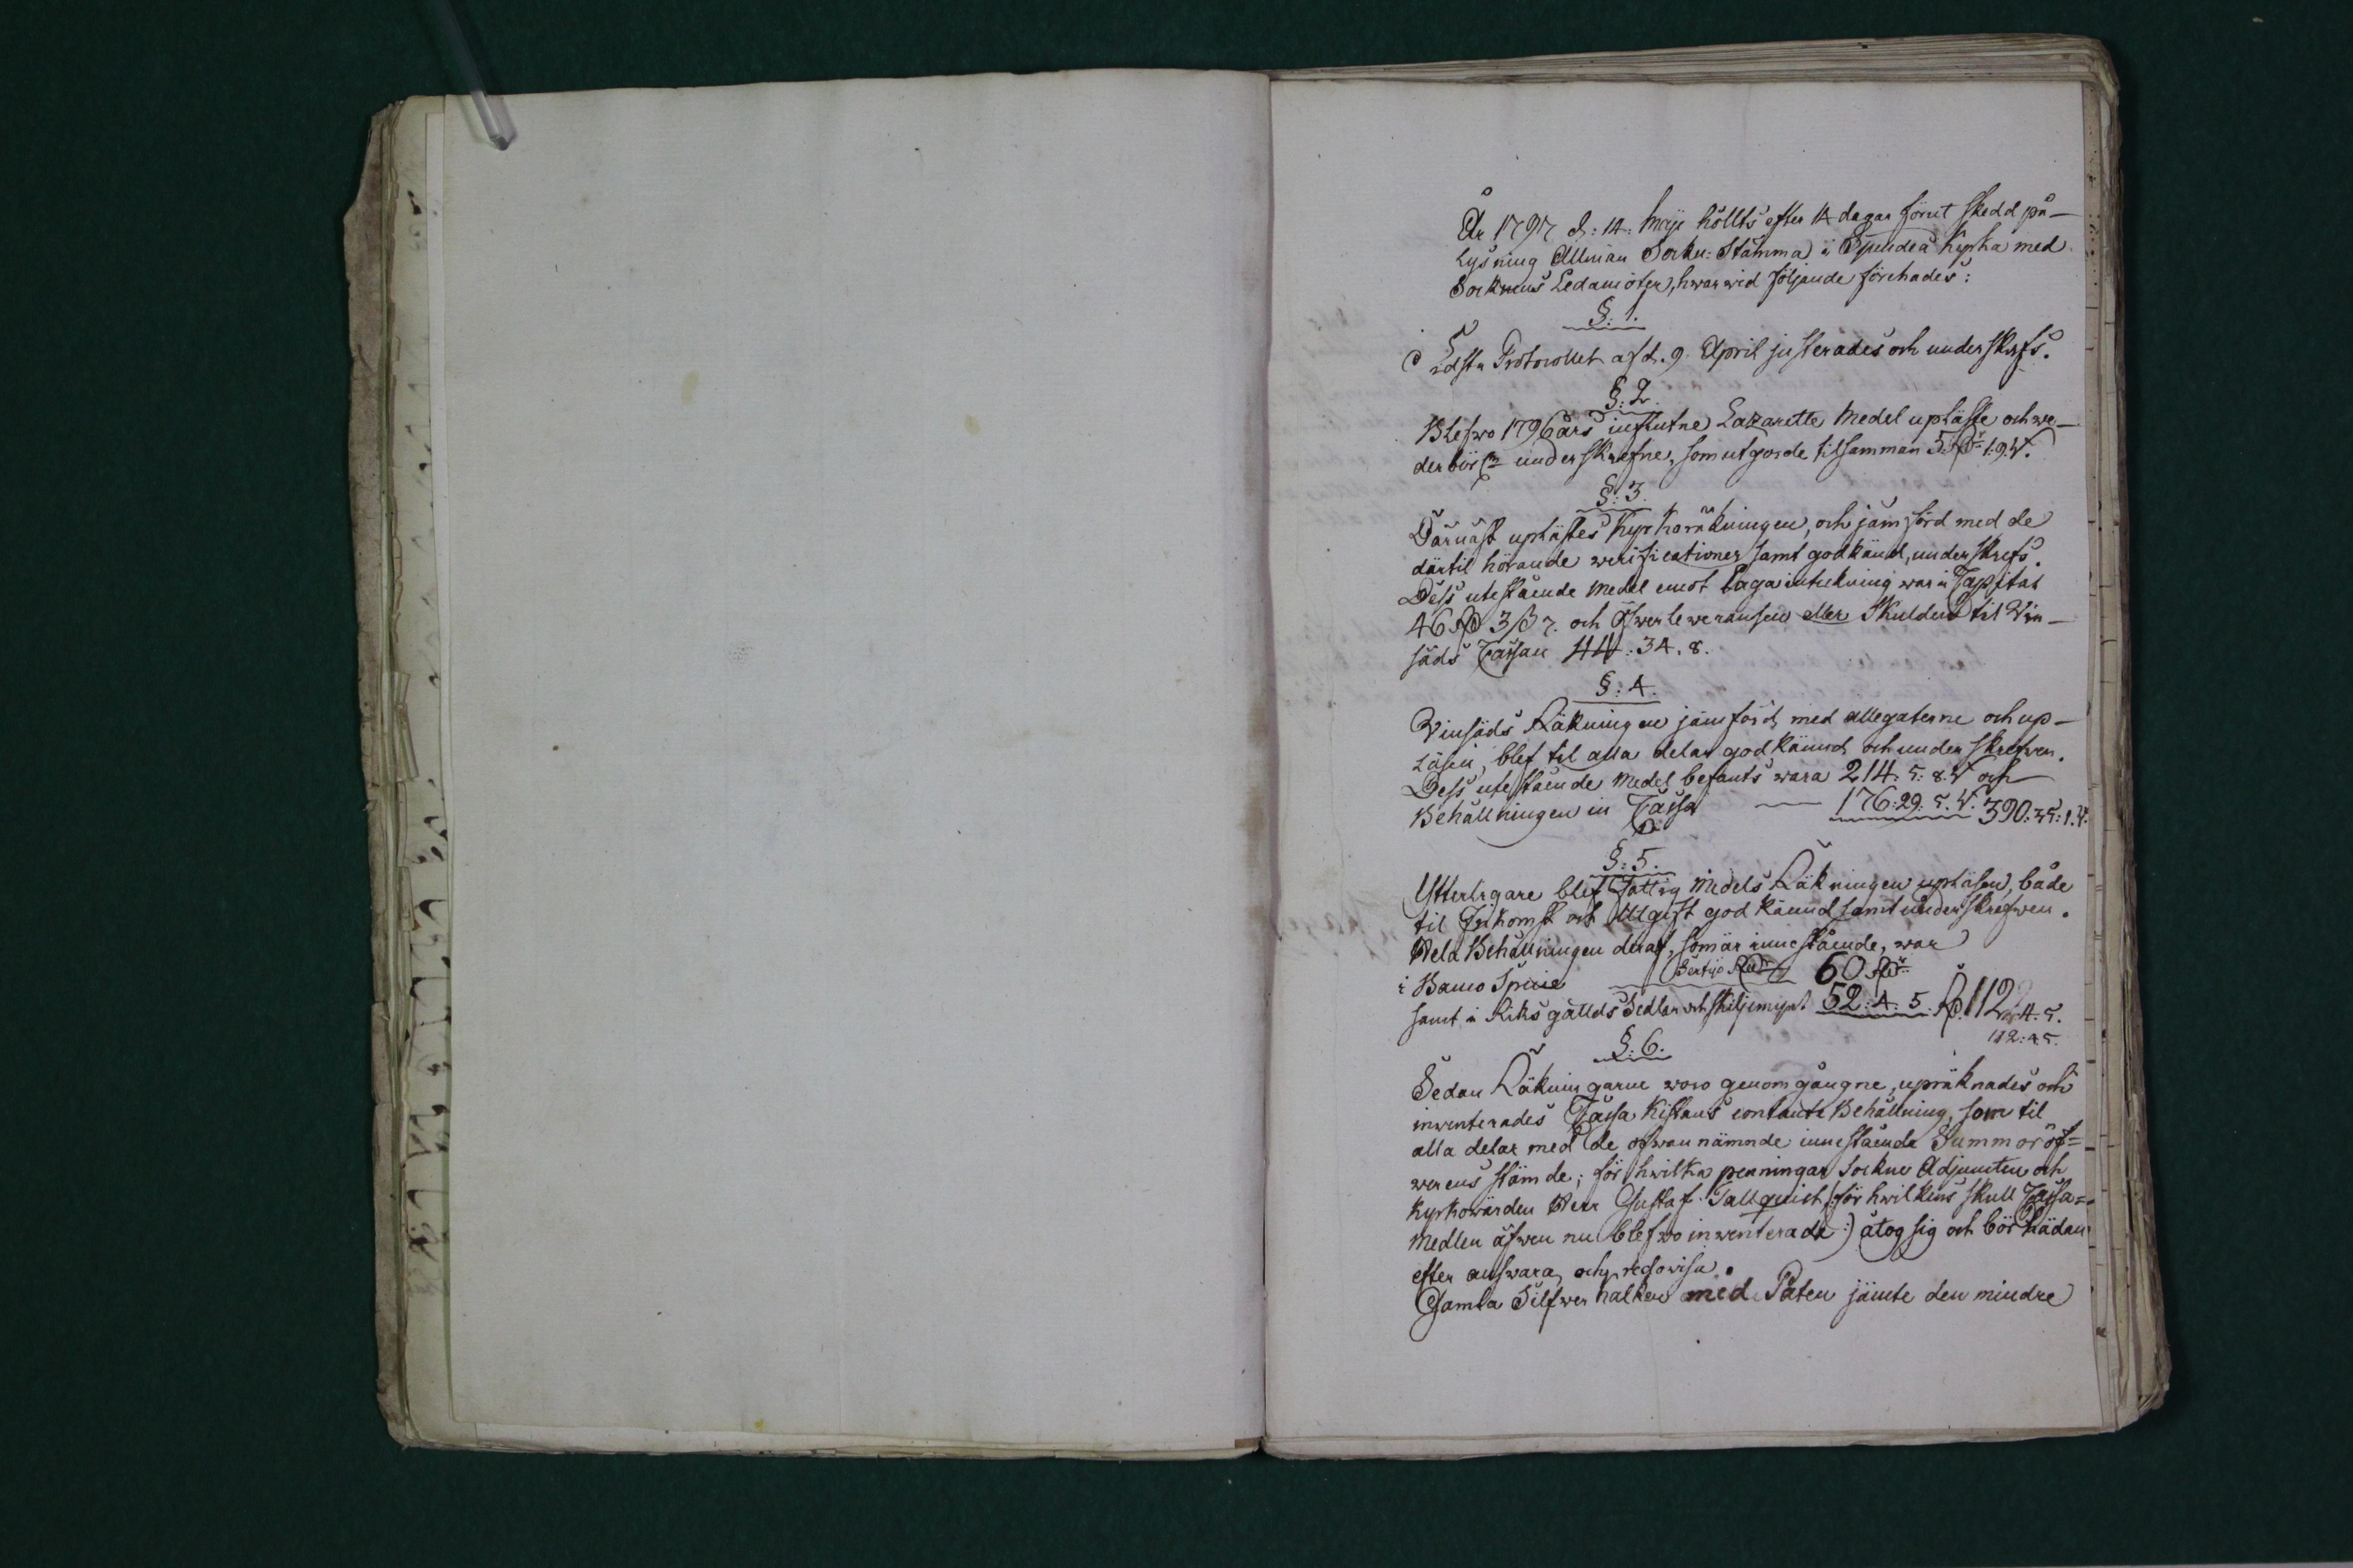 År 1797 d: 14: Maji höllts efter 14 dagar förut skedd på-
lysning Allmän Sokn: Stämma i Spendea Kyrka med
Soknens Ledamöter, hwarwid följande förehades:
§: 1.
Sidsta Protocollet af d. 9. April justerades och underskrefs.
§: 2.
Blefwo 1796 års influtne Lazaretts Medel upläste och we-
derbör. underskrefne, som utgorde tilsamman 5. Rd 1. 9. W.
§: 3.
Därnäst uplästes Kyrkoräkningen, och jämförd med de
därtil hörande verificationer samt godkänd, underskrefs.
Dess utestående Medel emot laga inteckning war i Capital
46 Rd 3 ß 7. och Öfwerleweransen eller Skulden til Vin-
säds Cassan 44: 34. 8.
§: 4.
Vinsäds Räkningen jämförd med allegaterne och up-
läsen, blef til alla delar godkännd och underskrefwen.
Dess utestående Medel befants wara 214: 5: 8. W och
Behållningen in Cassa — 176: 29: 5. W. 390: 35: 1. W.
§: 5.
Ytterligare blef Fattig Medels Räkningen upläsen, både
til Inkomst och Utgift godkännd samt underskrefwen.
Hela Behållningen deraf, som är innestående, war
i Banco Specie Sextijo Rdr 60 Rdr
samt i Riksgällds Sedlar och skiljemynt 52: 4: 5. Rd. 112: 4. 5.
112: 4. 5.
§: 6.
Sedan Räkningarne woro genomgångne, upräknades och
inventerades Cassa Kistans contanta Behållning, som til
alla delar med de ofwannämnde innestående Summor öf=
werens stämde; för hwilka penningar Sockne Adjuncten och
Kyrkowärden Herr Gustaf Tallquist (: för hwilkens skull Cassa=
Medlen äfwen nu blefwo inventerade :) åtog sig och bör hädan
efter answara och redowisa.
Gamla Silfwer kalken med Paten jämte den mindre